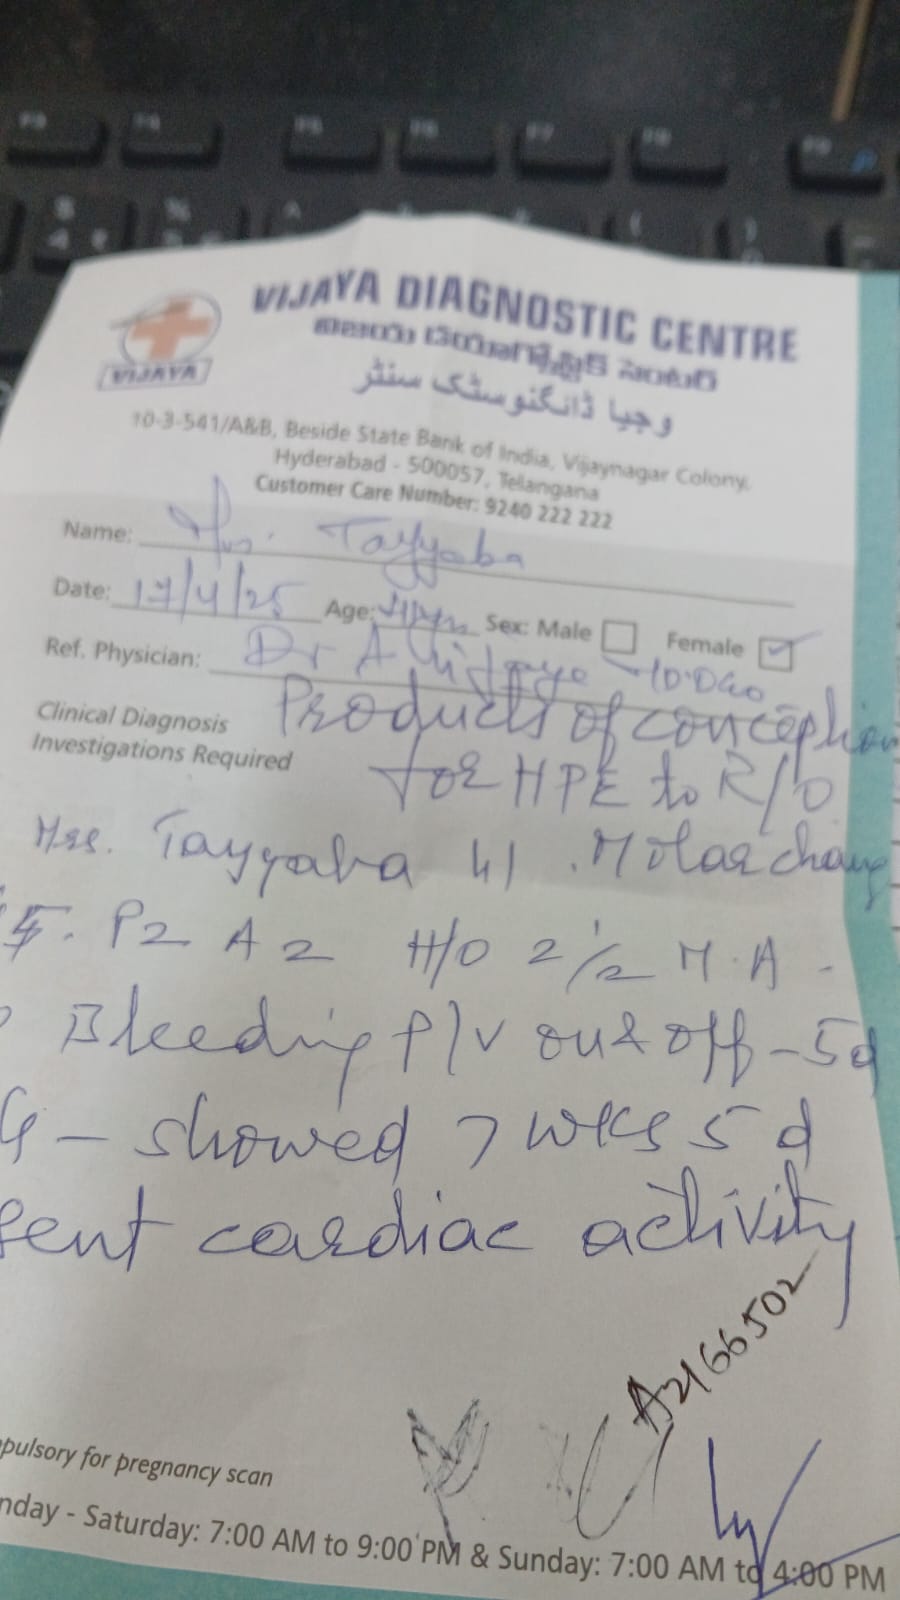 VIJAYA DIAGNOSTIC CENTRE
విజయ డయాగ్నోస్టిక్ సెంటర్
وجیا ڈائگنوسٹک سنٹر
VIJAYA
10-3-541/A&B, Beside State Bank of India, Vijaynagar Colony,
Hyderabad - 500057, Telangana
Customer Care Number: 9240 222 222
Name: Mrs. Tayyaba
Date: 17/4/25 Age: Sex: Male Female
Ref. Physician: Dr A
Clinical Diagnosis Products of conception
Investigations Required for HPE to R/O
Mrs. Tayyaba 41 . Molar chang
P2 A2 H/O 2 1/2 M.A -
Bleeding P/V on & off - 5d
G - showed 7 wks 5 d
sent cardiac activity
A2166502
pulsory for pregnancy scan
nday - Saturday: 7:00 AM to 9:00 PM & Sunday: 7:00 AM to 4:00 PM